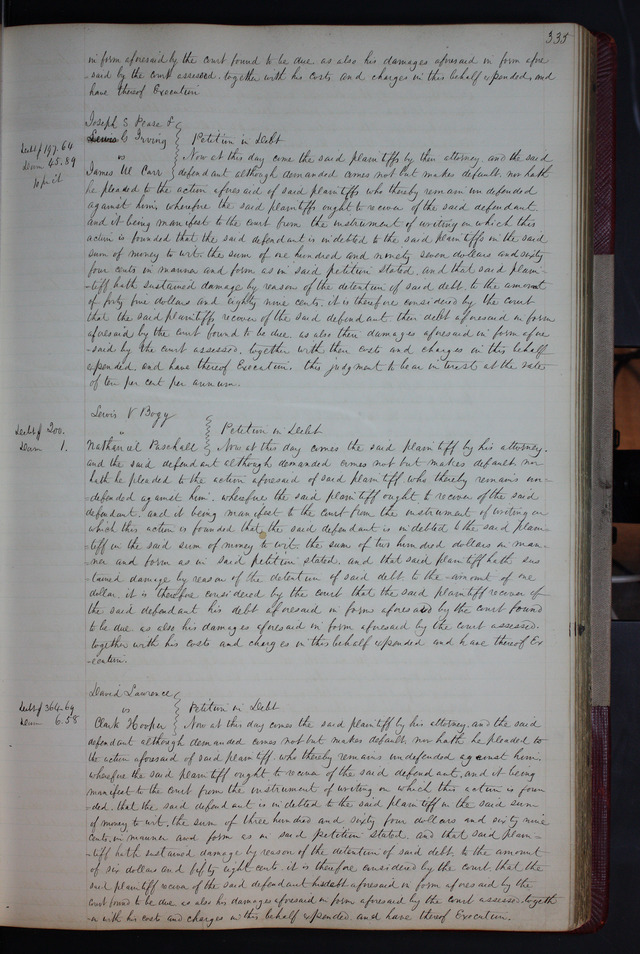 335
in form aforesaid by the court found to be due as also his damages aforesaid in form afore
-said by the court assessed. together with his costs and charges in this behalf expended, and
have thereof Execution
Joseph S Pease &
Lewis C Irving } Petition in Debt
Debt $197.64
Dam 45.89
10 pr ct
vs
Now at this day come the said plaintiffs by their attorney. and the said
James M Carr } defendant although demanded comes not but makes default, nor hath
he pleaded to the action aforesaid of said plaintiffs who thereby remain undefended
against him, wherefore the said plaintiffs ought to recover of the said defendant.
and it being manifest to the court from the instrument of writing on which this
action is founded that the said defendant is indebted to the said plaintiffs in the said
sum of money to wit. the sum of one hundred and ninety seven dollars and sixty
four cents in manner and form as in said petition stated, and that said plain-
-tiff hath sustained damage by reason of the detention of said debt. to the amount
of forty five dollars and eighty nine cents, it is therefore considered by the court
that the said plaintiffs recover of the said defendant their debt aforesaid in form
aforesaid by the court found to be due. as also their damages aforesaid in form afore
-said by the court assessed. together with their costs and charges in this behalf
expended. and have thereof Execution. this judgment to bear interest at the rate
of ten per cent per annum.
Lewis V Bogy
Debt $200.
Dam 1.
} Petition in Debt
Nathaniel Paschall } Now at this day comes the said plaintiff by his attorney.
and the said defendant although demanded comes not but makes default, nor
hath he pleaded to the action aforesaid of said plaintiff who thereby remains un-
-defended against him. wherefore the said plaintiff ought to recover of the said
defendant. and it being manifest to the court from the instrument of writing on
which this action is founded that the said defendant is indebted to the said plain-
-tiff in the said sum of money to wit. the sum of two hundred dollars in man-
-ner and form as in said petition stated. and that said plaintiff hath sus
-tained damage by reason of the detention of said debt to the amount of one
dollar. it is therefore considered by the court that the said plaintiff recover of
the said defendant his debt aforesaid in form aforesaid by the court found
to be due as also his damages aforesaid in form aforesaid by the court assessed.
together with his costs and charges in this behalf expended and have thereof Ex
-ecution.
David Lawrence
Debt $364.69
Dam 6.58
vs } Petition in Debt
Clark Hooper } Now at this day comes the said plaintiff by his attorney. and the said
defendant although demanded comes not but makes default, nor hath he pleaded to
the action aforesaid of said plaintiff. who thereby remains undefended against him.
wherefore the said plaintiff ought to recover of the said defendant, and it being
manifest to the court from the instrument of writing on which this action is foun-
-ded. that the said defendant is indebted to the said plaintiff in the said sum
of money to wit. the sum of three hundred and sixty four dollars and sixty nine
cents. in manner and form as in said petition stated. and that said plain-
-tiff hath sustained damage by reason of the detention of said debt. to the amount
of six dollars and fifty eight cents. it is therefore considered by the court that the
said plaintiff recover of the said defendant his debt aforesaid in form aforesaid by the
court found to be due as also his damages aforesaid in form aforesaid by the court assessed. togeth
-er with his costs and charges in this behalf expended. and have thereof Execution.